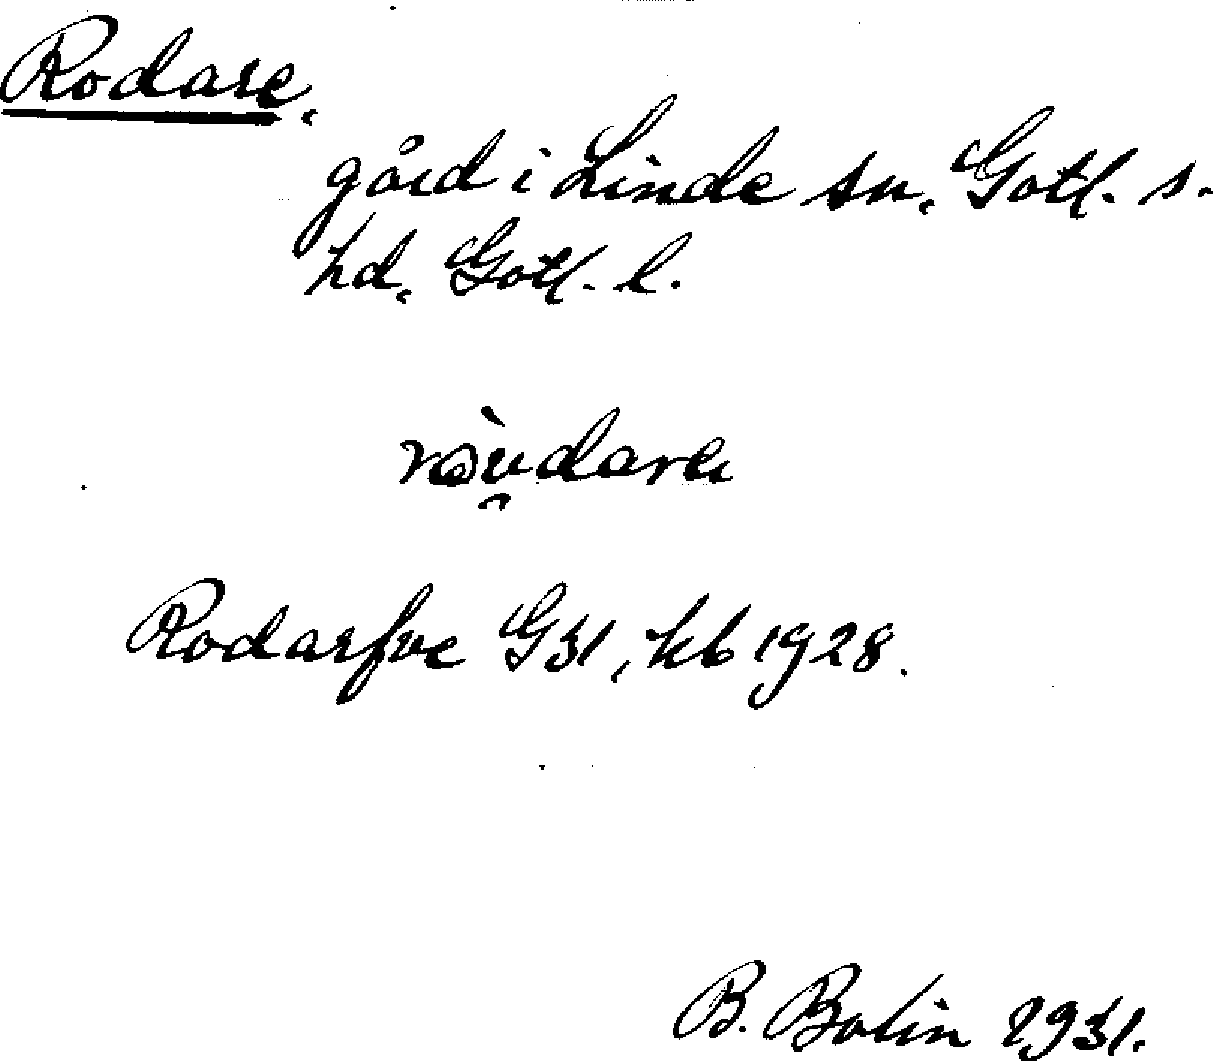 Rodare,
gård i Linde sn, Gotl. s.
hd, Gotl. l.
Rodarfve G31, kb 1928.
B. Bolin 1931.